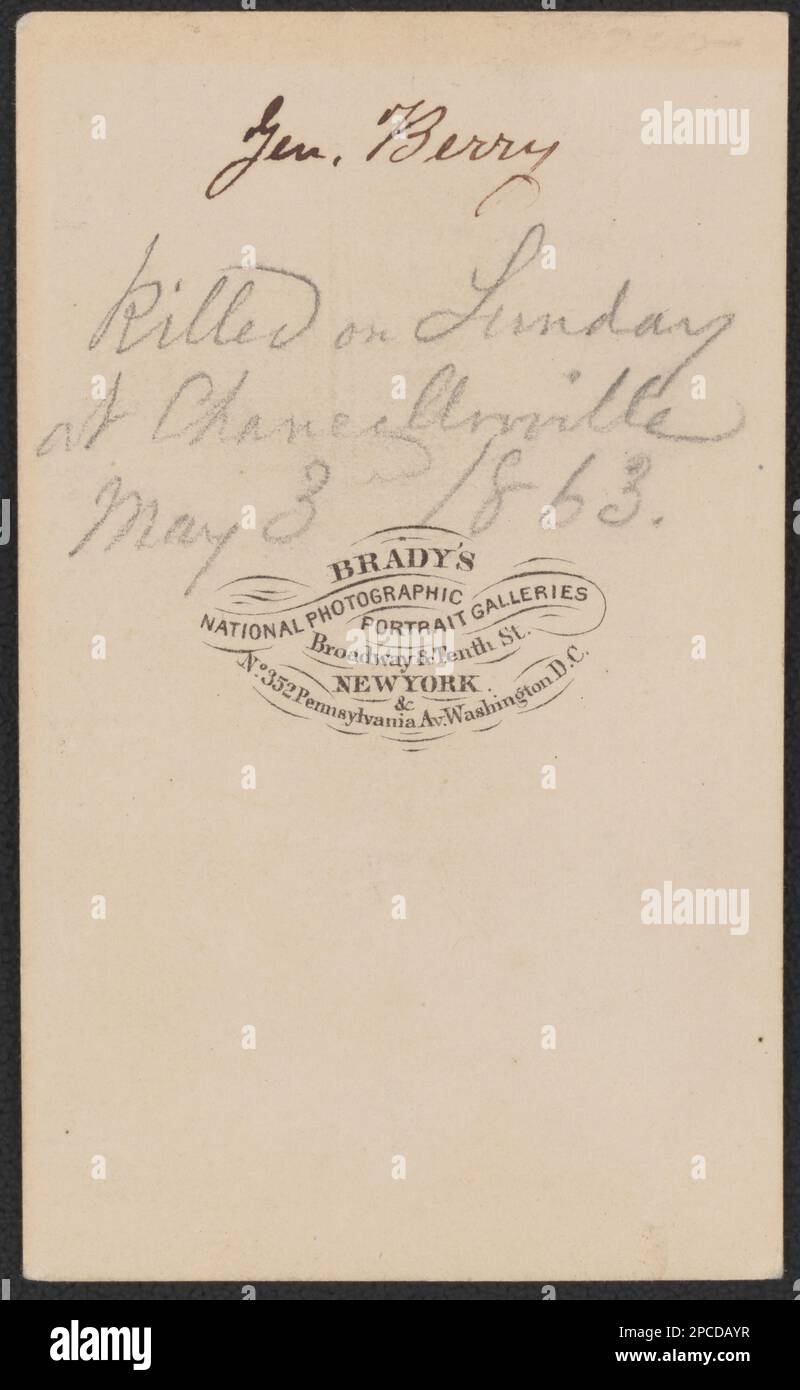 Gen. Berry
Killed on Sunday
at Chancellorville
May 3rd 1863.
BRADY'S
NATIONAL PHOTOGRAPHIC
PORTRAIT GALLERIES
Broadway & Tenth St.
NEW YORK
&c
No. 352 Pennsylvania Av. Washington D.C.
alamy
alamy
alamy
Image ID: 2PCDAYR
www.alamy.com